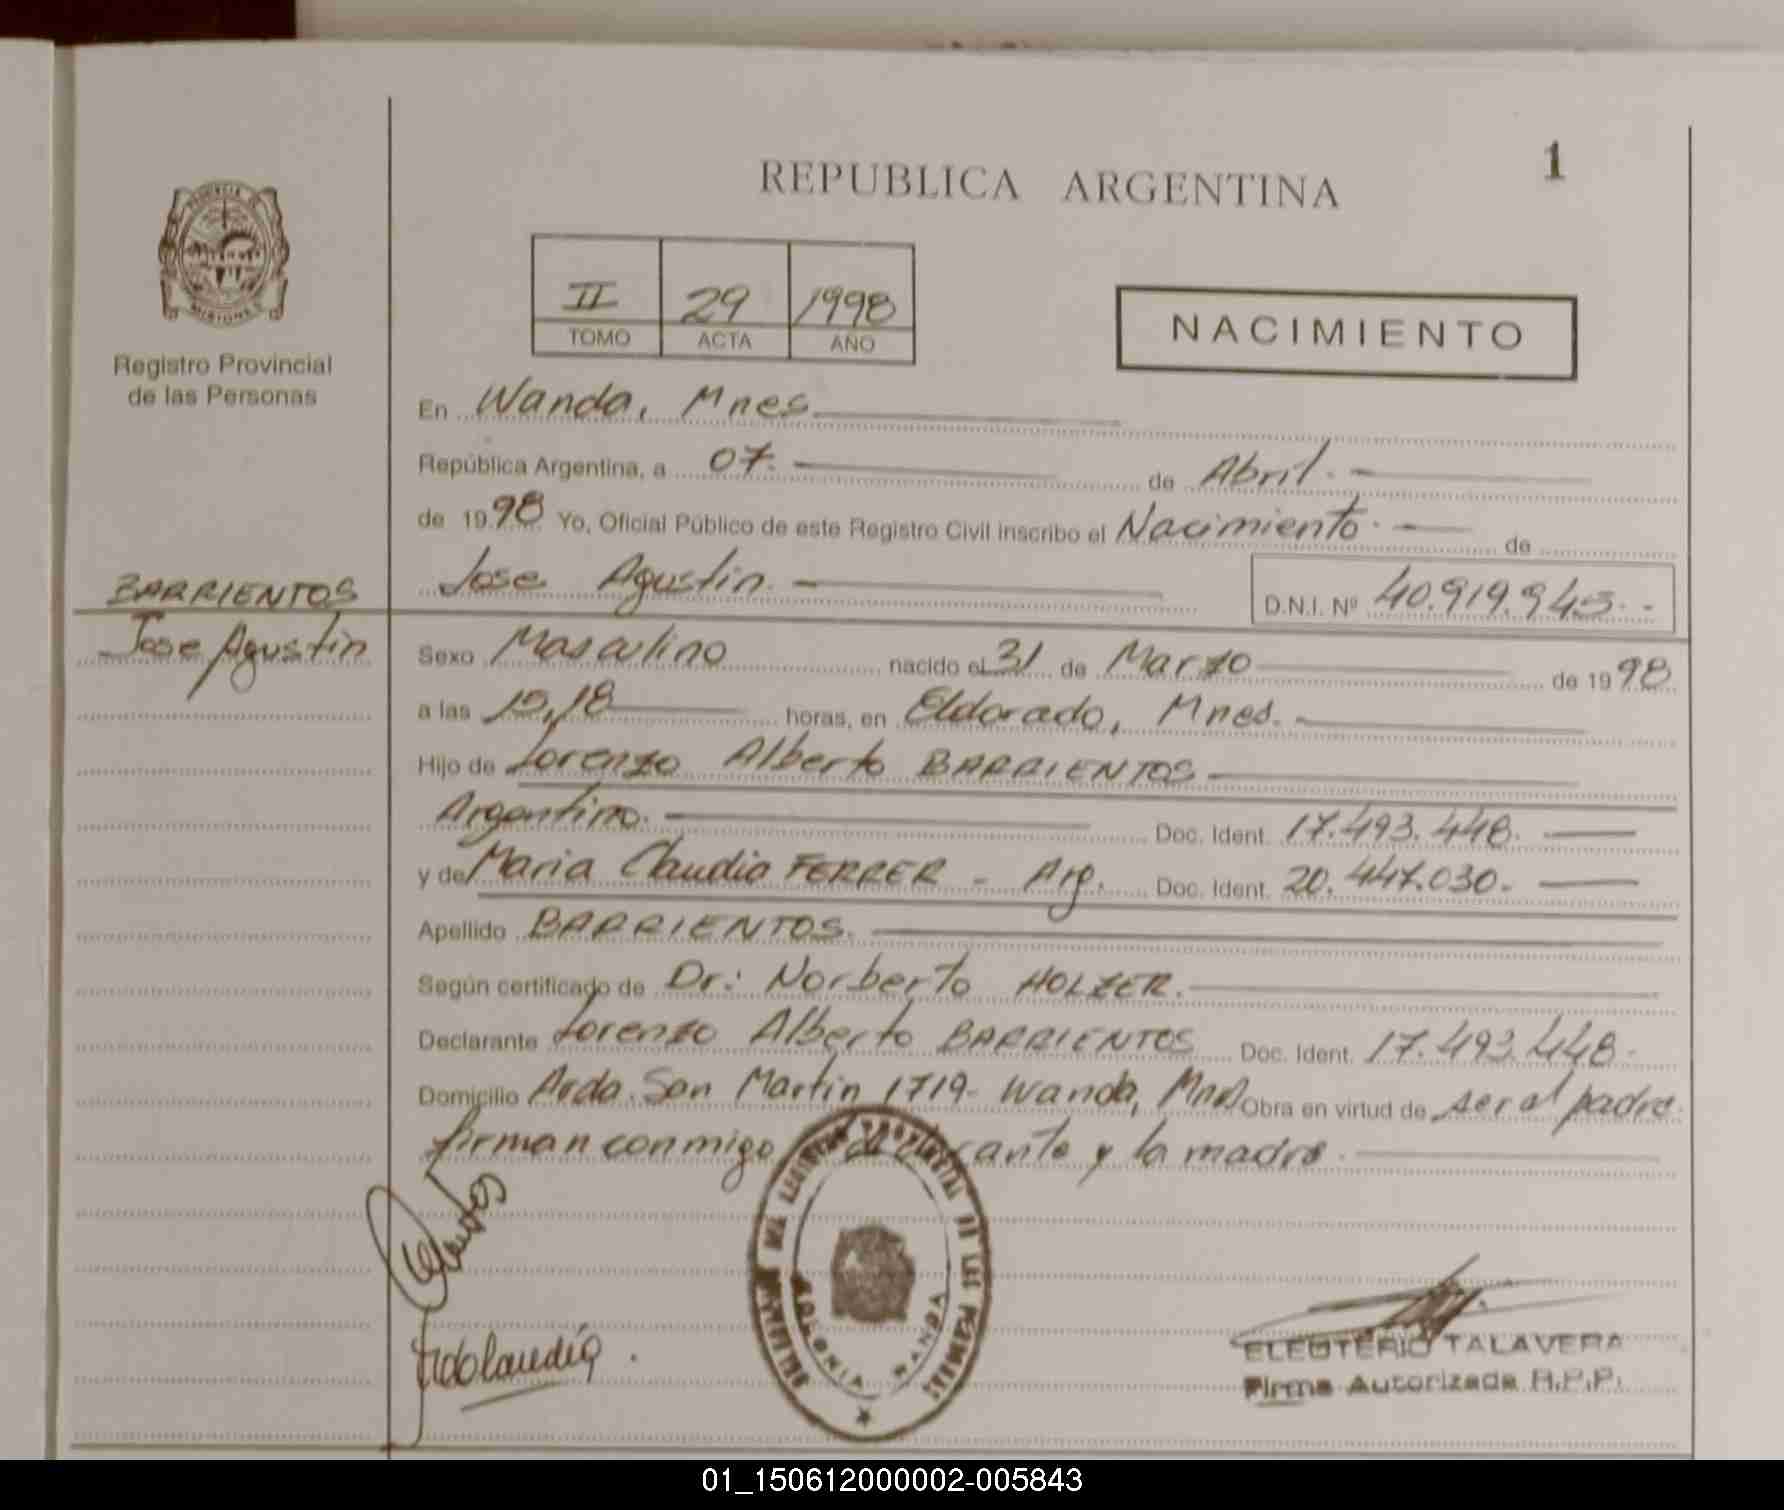 REPUBLICA ARGENTINA
1
II 29 1998
TOMO ACTA AÑO
NACIMIENTO
Registro Provincial
de las Personas
En Wanda, Mnes
República Argentina, a 07. de Abril.
de 1998 Yo, Oficial Público de este Registro Civil inscribo el Nacimiento. de
Jose Agustin. D.N.I. Nº 40.919.943.-
BARRIENTOS
Jose Agustin
Sexo Masculino nacido el 31 de Marzo de 1998
a las 15,18 horas, en Eldorado, Mnes.
Hijo de Lorenzo Alberto BARRIENTOS
Argentino. Doc. Ident. 17.493.448.
y de Maria Claudia FERRER - Arg. Doc. Ident. 20.447.030.
Apellido BARRIENTOS.
Según certificado de Dr.: Norberto HOLZER.
Declarante Lorenzo Alberto BARRIENTOS Doc. Ident. 17.493.448.
Domicilio Avda. San Martin 1719- Wanda, Mnes Obra en virtud de ser el padre
firman conmigo el declarante y la madre.
COLONIA WANDA
ELEUTERIO TALAVERA
Firma Autorizada R.P.P.
01_150612000002-005843